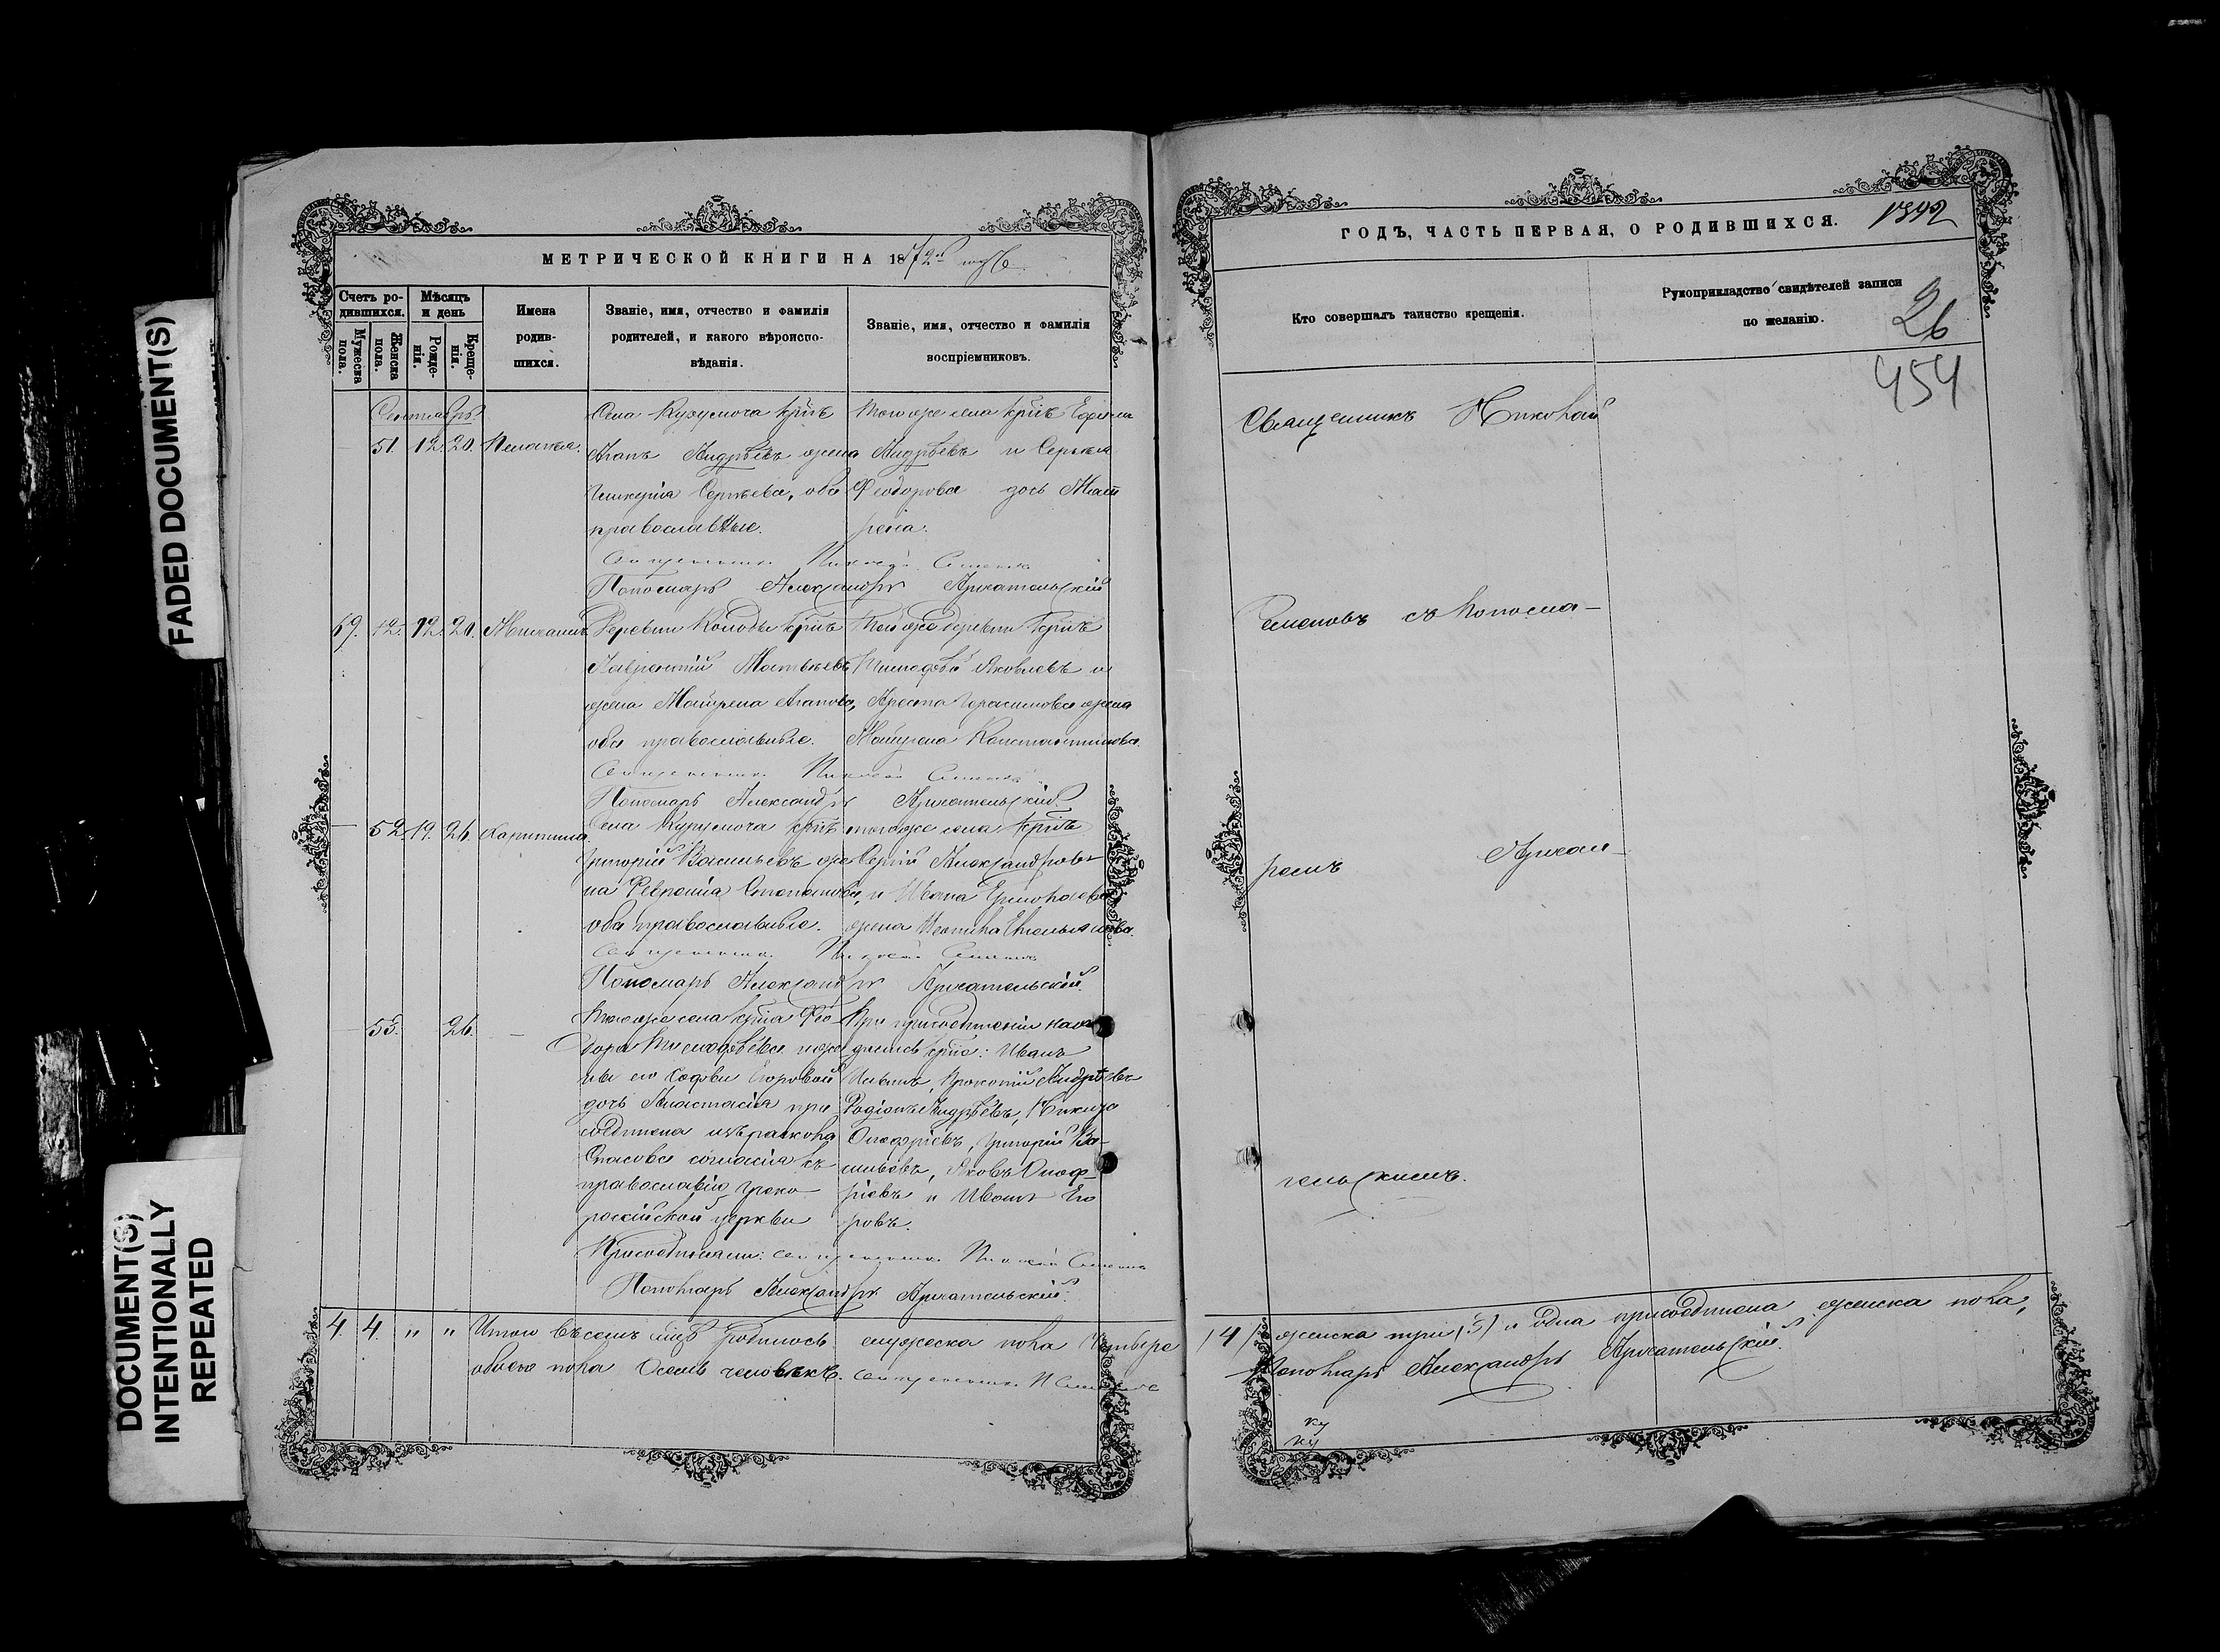 FADED DOCUMENT(S)
DOCUMENT(S)
INTENTIONALLY
REPEATED
МЕТРИЧЕСКОЙ КНИГИ НА 1872
Счетъ ро-
дившихся.
Мужеска
пола.
Женска
пола.
Мѣсяцъ
и день
Рожде-
нія.
Креще-
нія.
Имена
родив-
шихся.
Званіе, имя, отчество и фамилія
родителей, и какого вѣроиспо-
вѣданія.
Званіе, имя, отчество и фамилія
воспріемниковъ.
Сентябрь
51. 12. 20. Пелагея.
Села Курумоча
Агапъ Андрѣевъ жена
Гликерія Сергѣева, оба
православные.
Тогоже села Ефимъ
Андрѣевъ и Сергѣя
Феодорова дочь Мат
рена.
Священникъ Николай
Пономарь Александръ Архангельскій
69. 12. 20. Михаилъ
Деревни
Лаврентій Матвѣевъ
жена Матрена Агапова,
оба православные.
Той же деревни
Тимофей Яковлевъ и
Ареста Герасимова жена
Матрена Константинова.
Священникъ Николай
Пономарь Александръ Архангельскій
52. 19. 26. Харитина
Села Курумоча
Григорій Васильевъ же
на Феврония Степанова,
оба православные.
тогоже села
Сергій Александровъ
и Ивана Ермолаева
жена
Священникъ Николай
Пономарь Александръ Архангельскій.
53. 26. —
Тогоже села Фео
дора Тимофѣева и же
ны его Софьи Егоровой
дочь Анастасія при
соединена изъ раскола
Спасова согласія къ
православію греко
россійской церкви
При присоединеніи нахо
дились Иванъ
Ильинъ, Прокопій Андрѣевъ
Родіонъ Андрѣевъ, Никита
Онофріевъ, Григорій Ва-
сильевъ, Яковъ Оноф-
ріевъ и Иванъ Его
ровъ.
Присоединяли: священникъ Николай
Пономарь Александръ Архангельскій.
4. 4. " " Итого въ семъ мцѣ родилось мужеска пола четыре
обоего пола Осемь человѣкъ. священникъ Н
ГОДЪ, ЧАСТЬ ПЕРВАЯ, О РОДИВШИХСЯ.
1392
Кто совершалъ таинство крещенія.
Рукоприкладство свидѣтелей записи
по желанію.
26
454
Священникъ Николай
Семеновъ съ понома-
ремъ Архан-
гельскимъ.
/4/ женска три /3/ и одна присоединена женска пола,
Пономарь Александръ Архангельскій.